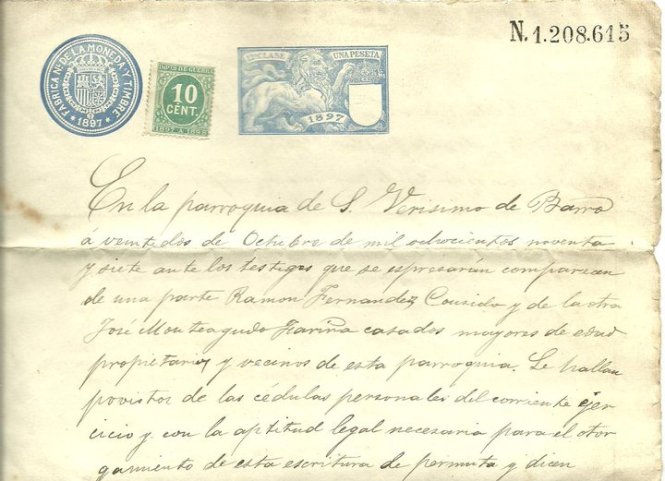 N. 1.208.615
FABRICA NL. DE LA MONEDA Y TIMBRE
* 1897 *
IMPTO DE GUERRA
10
CENT.
1897 A 1898
12ª CLASE UNA PESETA
1897
En la parroquia de S. Verisimo de Barro
á veintidos de Octubre de mil ochocientos noventa
y siete ante los testigos que se espresarán comparecen
de una parte Ramon Fernandez Cousido y de la otra
José Monteagudo Fariña casados mayores de edad
propietarios y vecinos de esta parroquia. Se hallan
povistos de las cédulas personales del corriente ejer
cicio y con la aptitud legal necesaria para el otor
gamiento de esta escritura de permuta y dicen